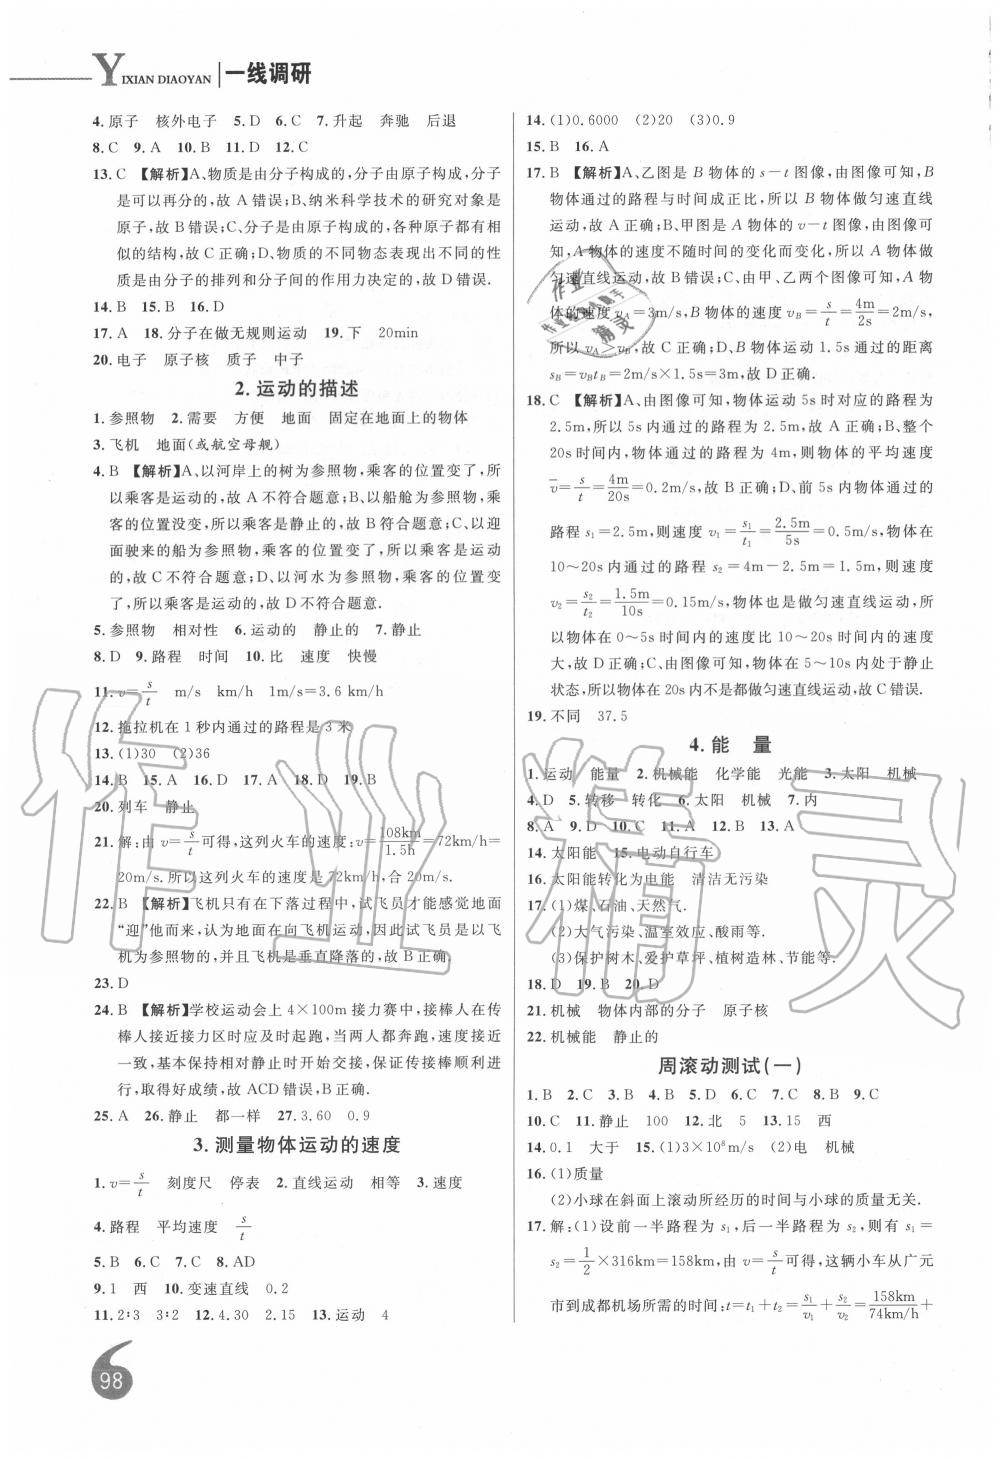 YIXIAN DIAOYAN 一线调研
4.原子 核外电子 5.D 6.C 7.升起 奔驰 后退
8.C 9.A 10.B 11.D 12.C
13.C 【解析】A、物质是由分子构成的,分子由原子构成,分子
是可以再分的,故 A 错误;B、纳米科学技术的研究对象是
原子,故 B 错误;C、分子是由原子构成的,原子都有在相
似的结构,故 C 正确;D、物质的不同物态表现出不同的性
质是由分子的排列和分子间的作用力决定的,故 D 错误.
14.B 15.B 16.D
17.A 18.分子在做无规则运动 19.下 20min
20.电子 原子核 质子 中子
2.运动的描述
1.参照物 2.需要 方便 地面 固定在地面上的物体
3.飞机 地面(或航空母舰)
4.B 【解析】A、以河岸上的树为参照物,乘客的位置变了,所
以乘客是运动的,故 A 不符合题意;B、以船舱为参照物,乘
客的位置没变,所以乘客是静止的,故 B 符合题意;C、以迎
面驶来的船为参照物,乘客的位置变了,所以乘客是运动
的,故 C 不符合题意;D、以河水为参照物,乘客的位置变
了,所以乘客是运动的,故 D 不符合题意.
5.参照物 相对性 6.运动的 静止的 7.静止
8.D 9.路程 时间 10.比 速度 快慢
11.v=s/t m/s km/h 1m/s=3.6 km/h
12.拖拉机在 1 秒内通过的路程是 3 米
13.(1)30 (2)36
14.B 15.A 16.D 17.A 18.D 19.B
20.列车 静止
21.解:由 v=s/t可得,这列火车的速度:v=108km/1.5h=72km/h=
20m/s.所以这列火车的速度是 72km/h,合 20m/s.
22.B 【解析】飞机只有在下落过程中,试飞员才能感觉地面
“迎”他而来,认为地面在向飞机运动,因此试飞员是以飞
机为参照物的,并且飞机是垂直降落的,故 B 正确.
23.D
24.B 【解析】学校运动会上 4×100m 接力赛中,接棒人在传
棒人接近接力区时应及时起跑,当两人都奔跑,速度接近
一致,基本保持相对静止时开始交接,保证传接棒顺利进
行,取得好成绩,故 ACD 错误,B 正确.
25.A 26.静止 都一样 27.3.60 0.9
3.测量物体运动的速度
1.v=s/t 刻度尺 停表 2.直线运动 相等 3.速度
4.路程 平均速度 s/t
5.B 6.C 7.C 8.AD
9.1 西 10.变速直线 0.2
11.2∶3 3∶2 12.4.30 2.15 13.运动 4
14.(1)0.6000 (2)20 (3)0.9
15.B 16.A
17.B 【解析】A、乙图是 B 物体的 s-t 图像,由图像可知,B
物体通过的路程与时间成正比,所以 B 物体做匀速直线
运动,故 A 正确;B、甲图是 A 物体的 v-t 图像,由图像可
知,A 物体的速度不随时间的变化而变化,所以 A 物体做
匀速直线运动,故 B 错误;C、由甲、乙两个图像可知,A 物
体的速度 vA=3m/s,B 物体的速度 vB=s/t=4m/2s=2m/s,
所以 vA>vB,故 C 正确;D、B 物体运动 1.5s 通过的距离
sB=vBtB=2m/s×1.5s=3m,故 D 正确.
18.C 【解析】A、由图像可知,物体运动 5s 时对应的路程为
2.5m,所以 5s 内物体通过的路程为 2.5m,故 A 正确;B、整个
20s 时间内,物体通过的路程为 4m,则物体的平均速度
v=s/t=4m/20s=0.2m/s,故 B 正确;D、前 5s 内物体通过的
路程 s1=2.5m,则速度 v1=s1/t1=2.5m/5s=0.5m/s,物体在
10～20s 内通过的路程 s2=4m-2.5m=1.5m,则速度
v2=s2/t2=1.5m/10s=0.15m/s,物体也是做匀速直线运动,所
以物体在 0～5s 时间内的速度比 10～20s 时间内的速度
大,故 D 正确;C、由图像可知,物体在 5～10s 内处于静止
状态,所以物体在 20s 内不是都做匀速直线运动,故 C 错误.
19.不同 37.5
4.能 量
1.运动 能量 2.机械能 化学能 光能 3.太阳 机械
4.D 5.转移 转化 6.太阳 机械 7.内
8.A 9.D 10.C 11.A 12.B 13.A
14.太阳能 15.电动自行车
16.太阳能转化为电能 清洁无污染
17.(1)煤、石油、天然气.
(2)大气污染、温室效应、酸雨等.
(3)保护树木、爱护草坪、植树造林、节能等.
18.D 19.B 20.D
21.机械 物体内部的分子 原子核
22.机械能 静止的
周滚动测试(一)
1.B 2.C 3.B 4.B 5.D 6.C 7.B 8.C 9.A
10.C 11.静止 100 12.北 5 13.15 西
14.0.1 大于 15.(1)3×10⁸m/s (2)电 机械
16.(1)质量
(2)小球在斜面上滚动所经历的时间与小球的质量无关.
17.解:(1)设前一半路程为 s1,后一半路程为 s2,则有 s1=
s2=1/2×316km=158km,由 v=s/t可得,这辆小车从广元
市到成都机场所需的时间:t=t1+t2=s1/v1+s2/v2=158km/74km/h+
98
作业精灵